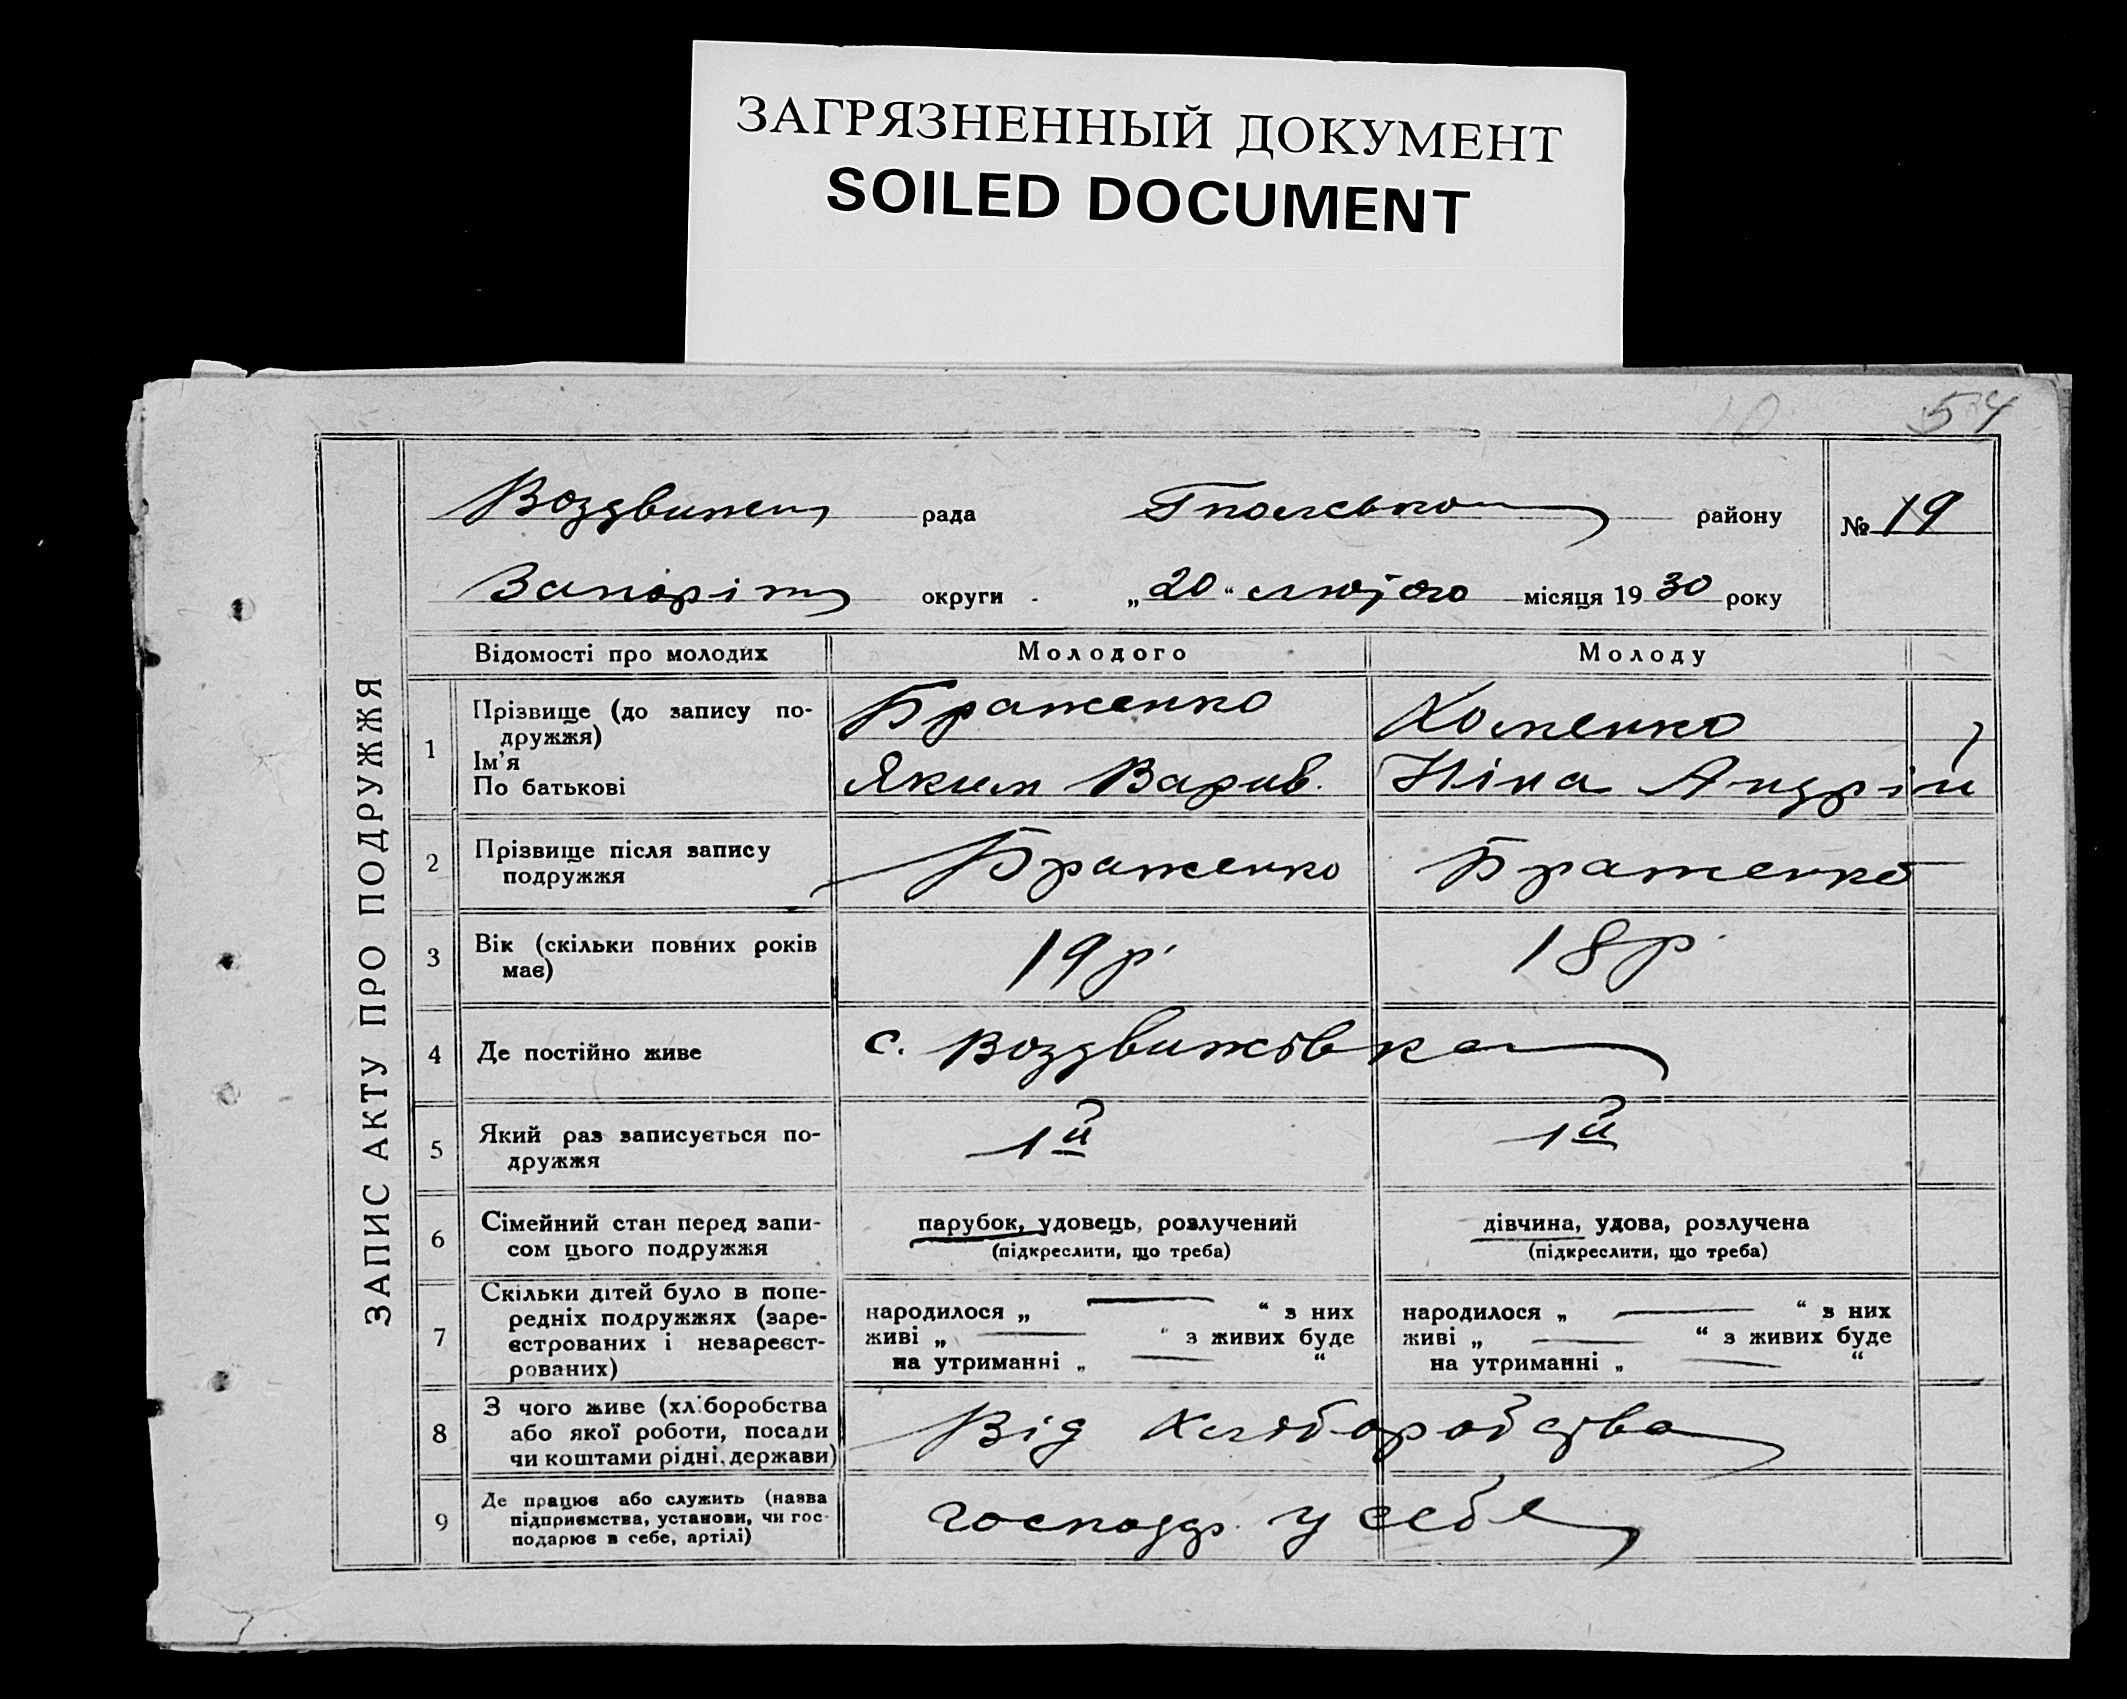 ЗАГРЯЗНЕННЫЙ ДОКУМЕНТ
SOILED DOCUMENT
54
ЗАПИС АКТУ ПРО ПОДРУЖЖЯ
рада району № 19
округи „20“ лютого місяця 1930 року
Відомості про молодих Молодого Молоду
1 Прізвище (до запису по-
дружжя)
Ім'я
По батькові
Браженко Хоменко
Яким Варив. Ніна Андрій
2 Прізвище після запису
подружжя
Браженко Браженко
3 Вік (скільки повних років
має)
19 р. 18 р.
4 Де постійно живе с. Воздвижівка
5 Який раз записується по-
дружжя
1й 1й
6 Сімейний стан перед запи-
сом цього подружжя
парубок, удовець, розлучений
(підкреслити, що треба)
дівчина, удова, розлучена
(підкреслити, що треба)
7 Скільки дітей було в попе-
редніх подружжях (заре-
єстрованих і незареєст-
рованих)
народилося „ — “ з них
живі „ — “ з живих буде
на утриманні „ — “
народилося „ — “ з них
живі „ — “ з живих буде
на утриманні „ — “
8 З чого живе (хліборобства
або якої роботи, посади
чи коштами рідні, держави)
Від хліборобства
9 Де працює або служить (назва
підприємства, установи, чи гос-
подарює в себе, артілі)
господар. у себе